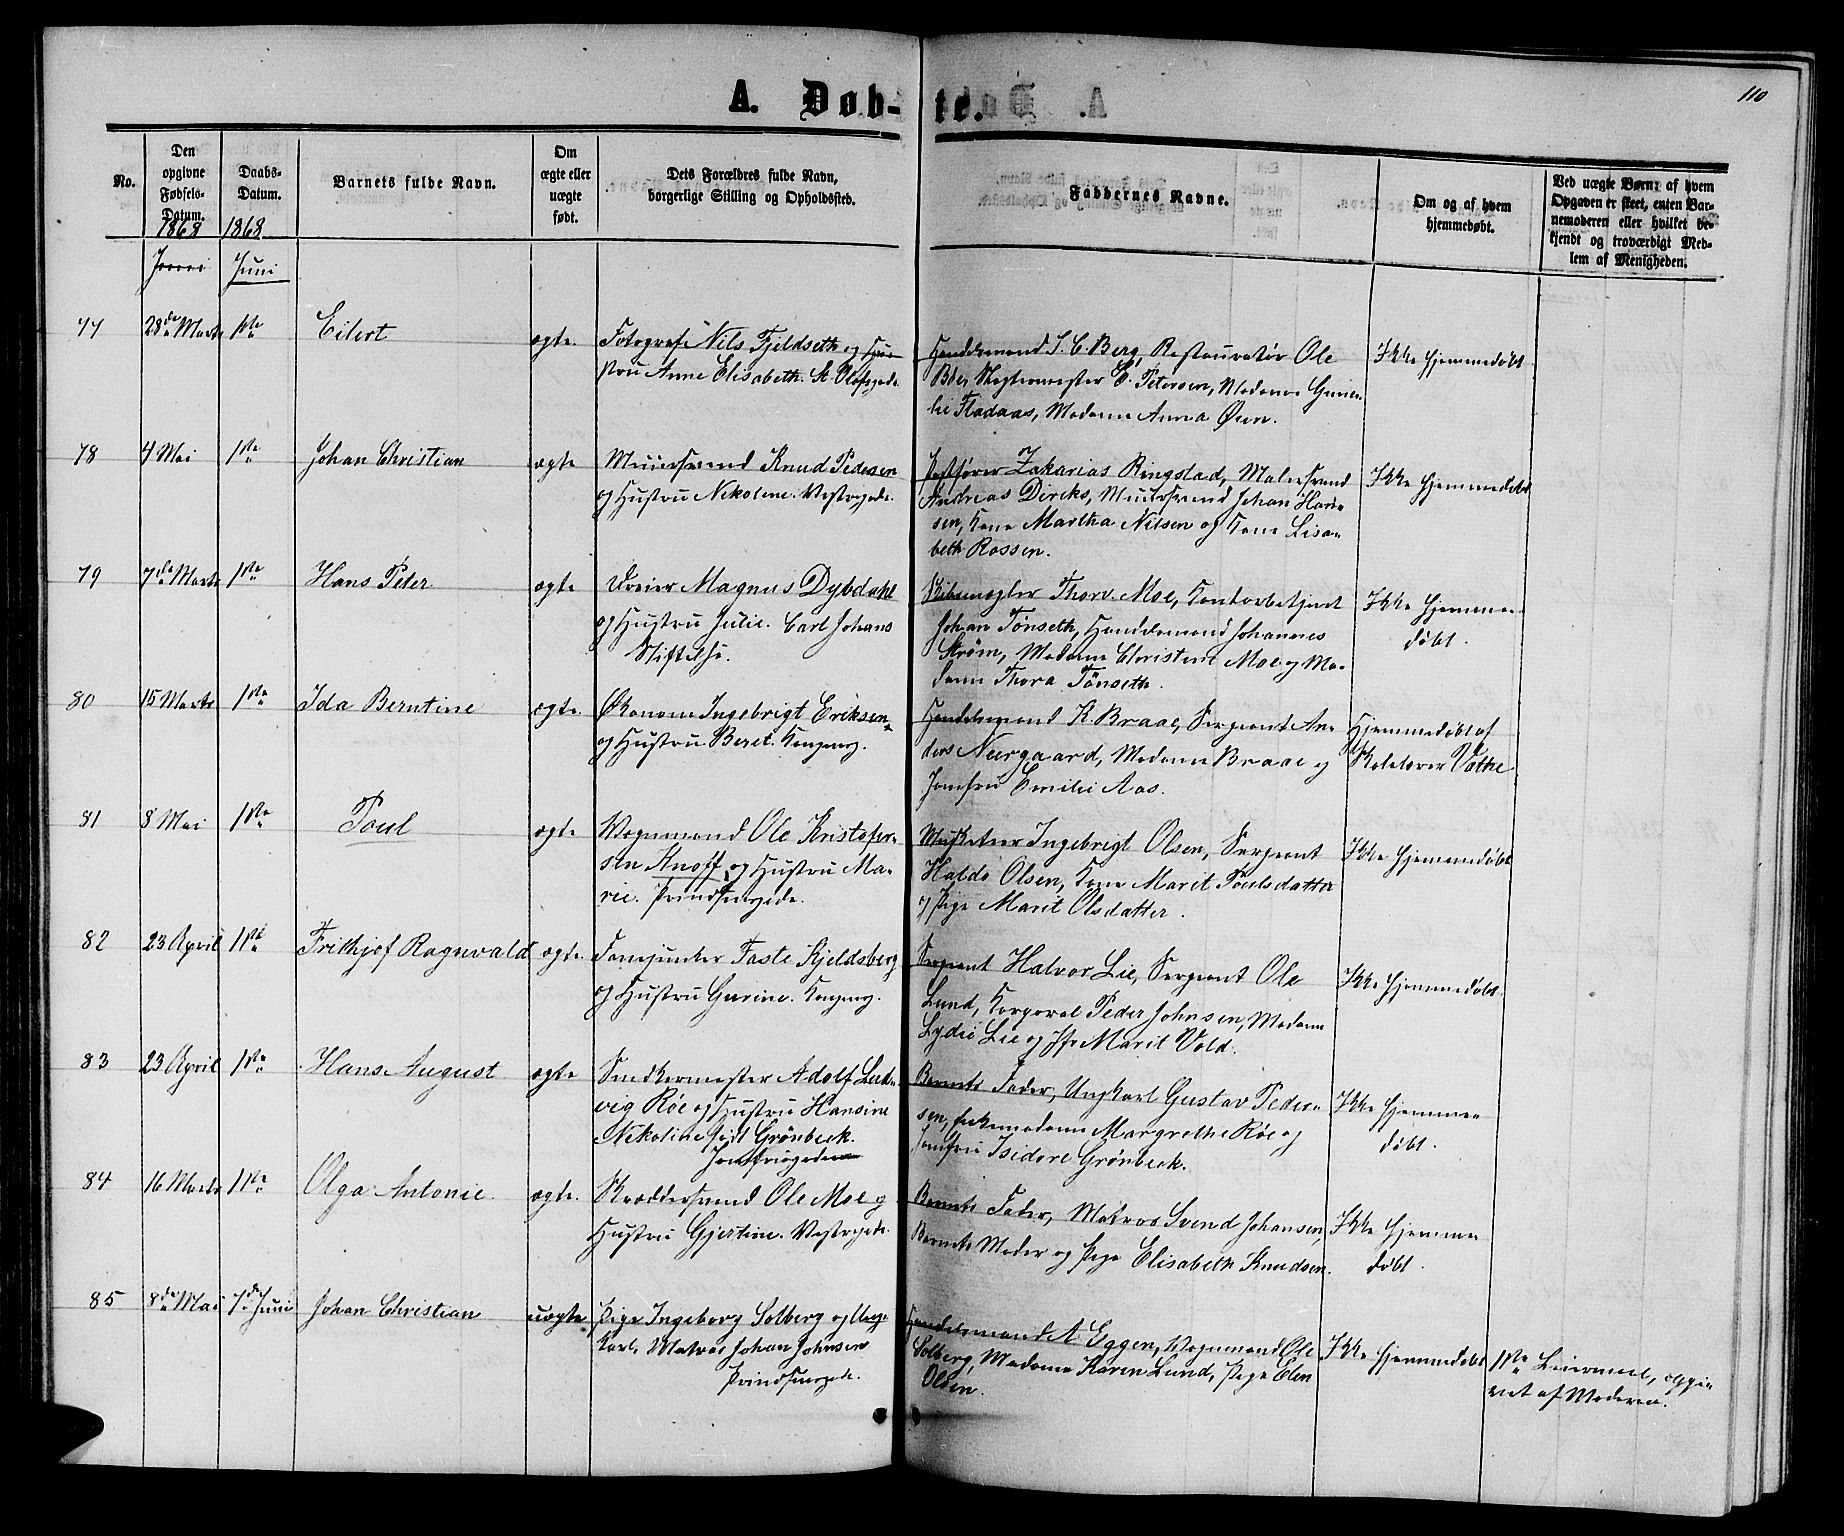 110
A. Døb-te.
No.
Den opgivne Fødsels-Datum.
Daabs-Datum.
Barnets fulde Navn.
Om ægte eller uægte født.
Dets Forældres fulde Navn, borgerlige Stilling og Opholdssted.
Faddernes Navne.
Om og af hvem hjemmedøbt.
Ved uægte Børn: af hvem Opgaven er skeet, enten Barnemoderen eller hvilket bekjendt og troværdigt Medlem af Menigheden.
1868 1868
Juni
77 28de Marts 1ste Eilert ægte. Fotograf Nils Fjeldseth og Hu-
stru Anne Elisabeth. St. Olafsgade.
Handelsmand I. C. Berg, Restauratør Ole
Boe, Slagtermester C. Petersen, Madame Gune-
lie Fladaas, Madame Anna Øien.
Ikke hjemmedøbt
78 4 Mai 1ste Johan Christian ægte Muursvend Knud Pedersen
og Hustru Nikoline. Vestregade.
Postfører Zakarias Ringstad, Malersvend
Andreas Dircks, Muursvend Johan Han-
sen, Kone Martha Nilsen og Kone Lisa-
beth Rossen.
Ikke hjemmedøbt
79 7de Marts 1ste Hans Peter ægte Dreier Magnus Dybdahl
og Hustru Julie. Carl Johans
Stiftelse.
Skibsmægler Thorv. Moe, Contorbetjent
Johan Tønseth, Handelsmand Johannes
Strøm, Madame Christine Moe og Ma-
dame Thora Tønseth.
Ikke hjemme-
døbt.
80 15 Marts 1ste Ida Berntine ægte. Økonom Ingebrigt Eriksen
og Hustru Beret. Kongensg.
Handelsmand K. Braae, Sergeant An-
ders Neergaard, Madame Braae og
Jomfru Emilie Aas.
Hjemmedøbt af
Skolelærer Vatne
81 8 Mai 1ste Poul ægte Vognmand Ole Kristofer-
sen Knoff og Hustru Ma-
rie. Prindsensgade.
Musketeer Ingebrigt Olsen, Sergeant
Haldo Olsen, Kone Marit Poulsdatter
og Pige Marit Olsdatter.
Ikke hjemmedøbt
82 23 April 1ste Frithjof Ragnvald ægte. Fanejunker Faste Kjeldsberg
og Hustru Gurine. Kongensg.
Sergeant Halvor Lie, Sergeant Ole
Lund, Korporal Peder Johnsen, Madame
Lydie Lie og Jfr Marit Vold.
Ikke hjemmedøbt
83 23 April 1ste Hans August ægte Snedkermester Adolf Lud-
vig Röe og Hustru Hansine
Nikoline født Grönbeck.
Jomfrugaden
Barnets Fader, Ungkarl Gustav Peder-
sen, Enkemadame Margrethe Röe og
Jomfru Isidore Grönbeck.
Ikke hjemme-
døbt.
84 16 Marts 1ste Olga Antonie ægte. Skræddersvend Ole Moe og
Hustru Gjertine. Vestregade.
Barnets Fader, Matros Svend Johansen
Barnets Moder og Pige Elisabeth Knudsen.
Ikke hjemme-
døbt.
85 8de Mai 7de Juni Johan Christian uægte Pige Ingeborg Solberg og Ung-
karl, Matros Johan Johnsen
Prindsensgade.
Handelsmand A Eggen, Vognmand Ole
Solberg, Madame Karen Lund, Pige Elen
Olsen.
Ikke hjemmedøbt
1ste Leiermaal, opgi-
vet af Moderen.